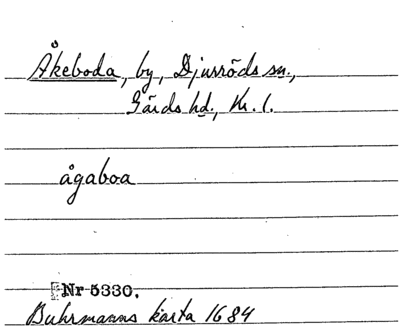 Åkeboda, by, Djurröds sn.,
Gärds hd., Kr. l.
ågaboa
Nr 5330.
Buhrmanns karta 1684